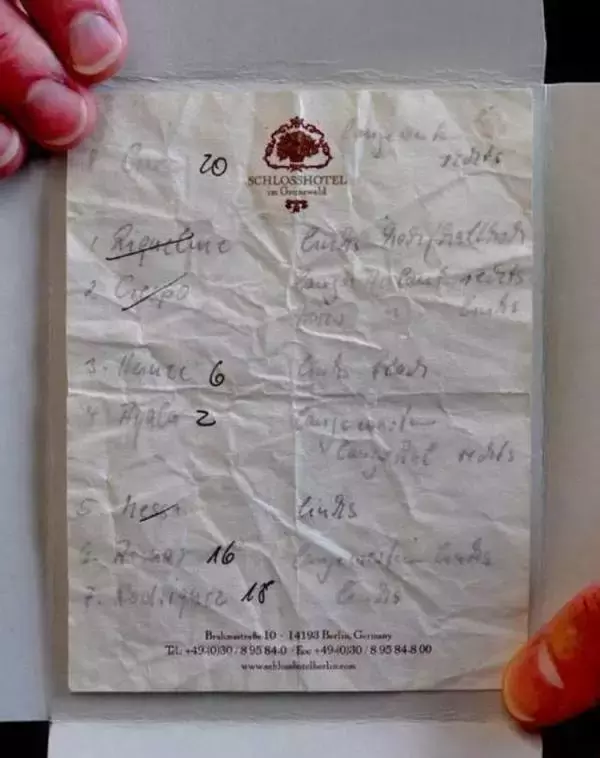 20
SCHLOSSHOTEL
im Grunewald
rechts
1 Riquelme links hoch/halbhoch
2 Crespo Anlauf rechts
" links
3. Heinze 6 links flach
4. Ayala 2
rechts
5 Messi links
6. Aimar 16 links
7. Rodriguez 18 links
Brahmsstraße 10 · 14193 Berlin, Germany
Tel.: +49-(0)30 / 8 95 84-0 · Fax: +49-(0)30 / 8 95 84-8 00
www.schlosshotelberlin.com